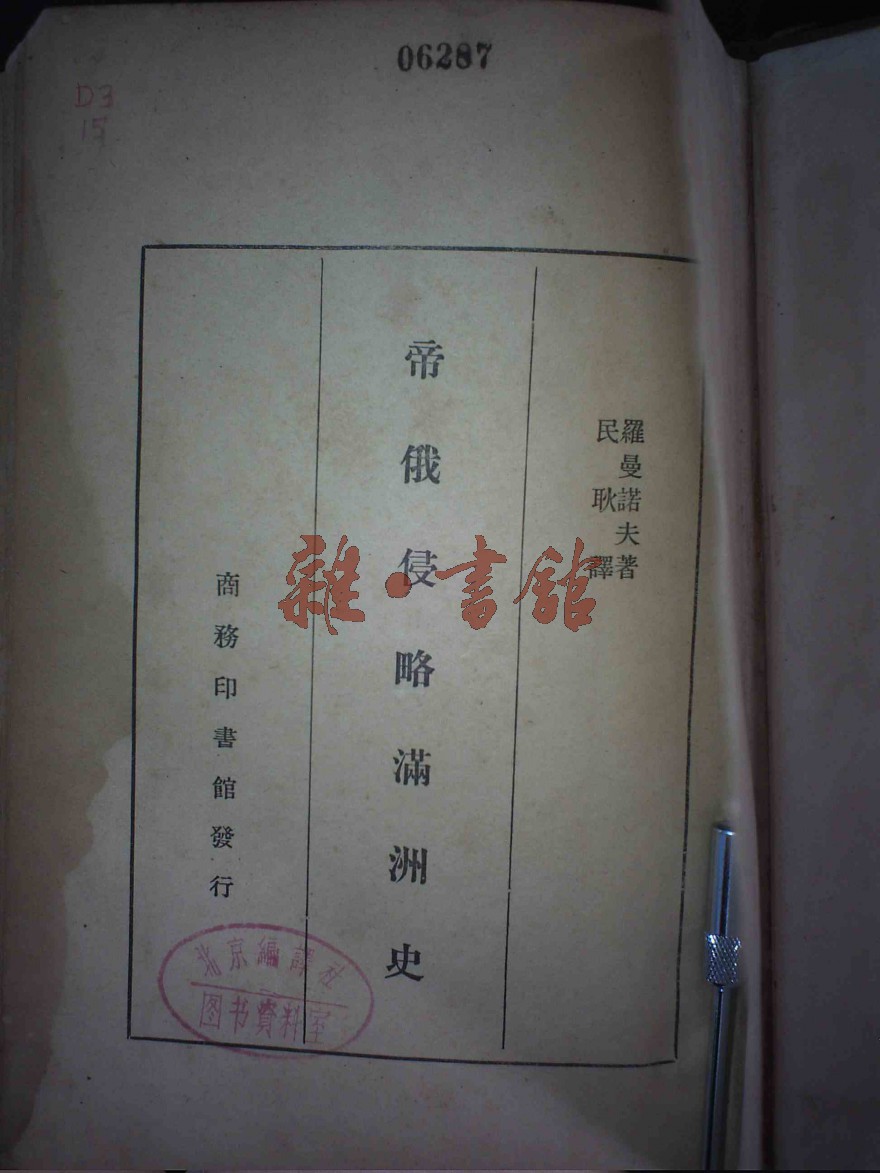 06287
D3
15
羅曼諾夫著
民耿譯
帝俄侵略滿洲史
商務印書館發行
北京編譯社
图书資料室
雜·書館